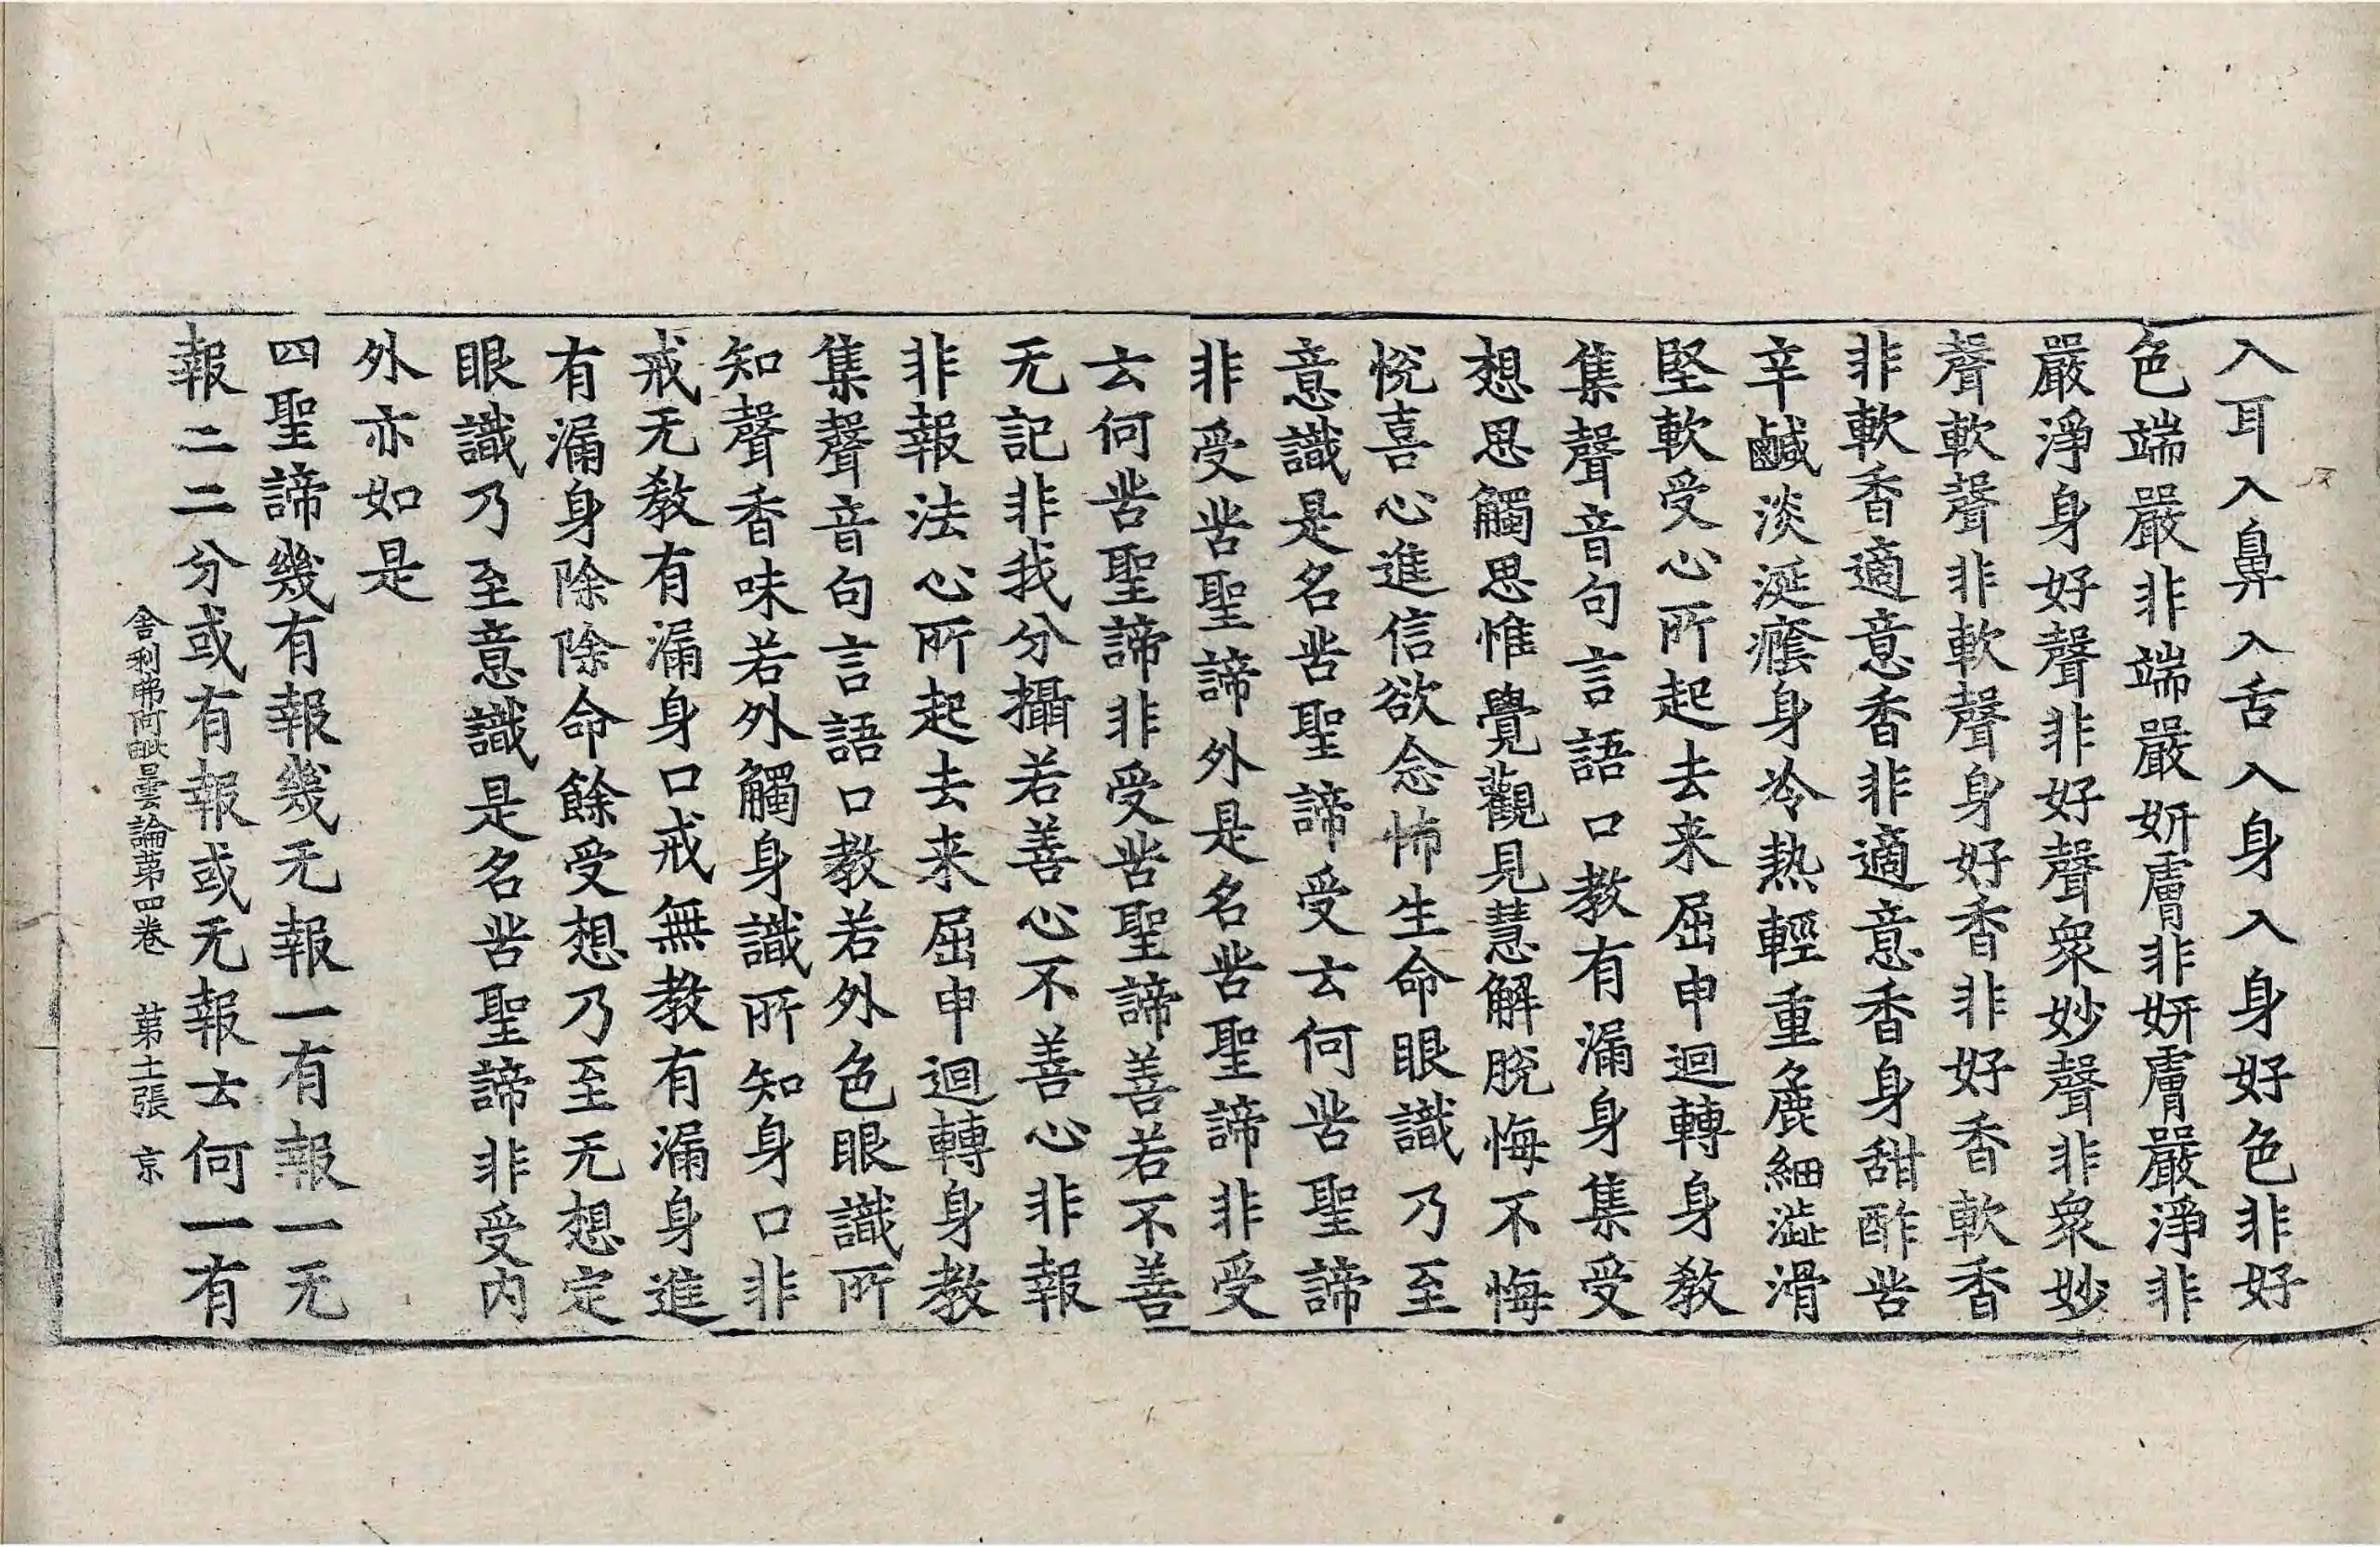 入耳入鼻入舌入身入身好色非好
色端嚴非端嚴妍膚非妍膚嚴淨非
嚴淨身好聲非好聲衆妙聲非衆妙
聲軟聲非軟聲身好香非好香軟香
非軟香適意香非適意香身甜酢苦
辛鹹淡涎癊身冷熱輕重麁細澁滑
堅軟受心所起去来屈申迴轉身教
集聲音句言語口教有漏身集受
想思觸思惟覺觀見慧解脫悔不悔
悅喜心進信欲念怖生命眼識乃至
意識是名苦聖諦受云何苦聖諦
非受苦聖諦外是名苦聖諦非受
云何苦聖諦非受苦聖諦善若不善
无記非我分攝若善心不善心非報
非報法心所起去来屈申迴轉身教
集聲音句言語口教若外色眼識所
知聲香味若外觸身識所知身口非
戒无教有漏身口戒無教有漏身進
有漏身除除命餘受想乃至无想定
眼識乃至意識是名苦聖諦非受内
外亦如是
四聖諦幾有報幾无報一有報一无
報二二分或有報或无報云何一有
舍利弗阿毗曇論苐四卷 苐土張 京